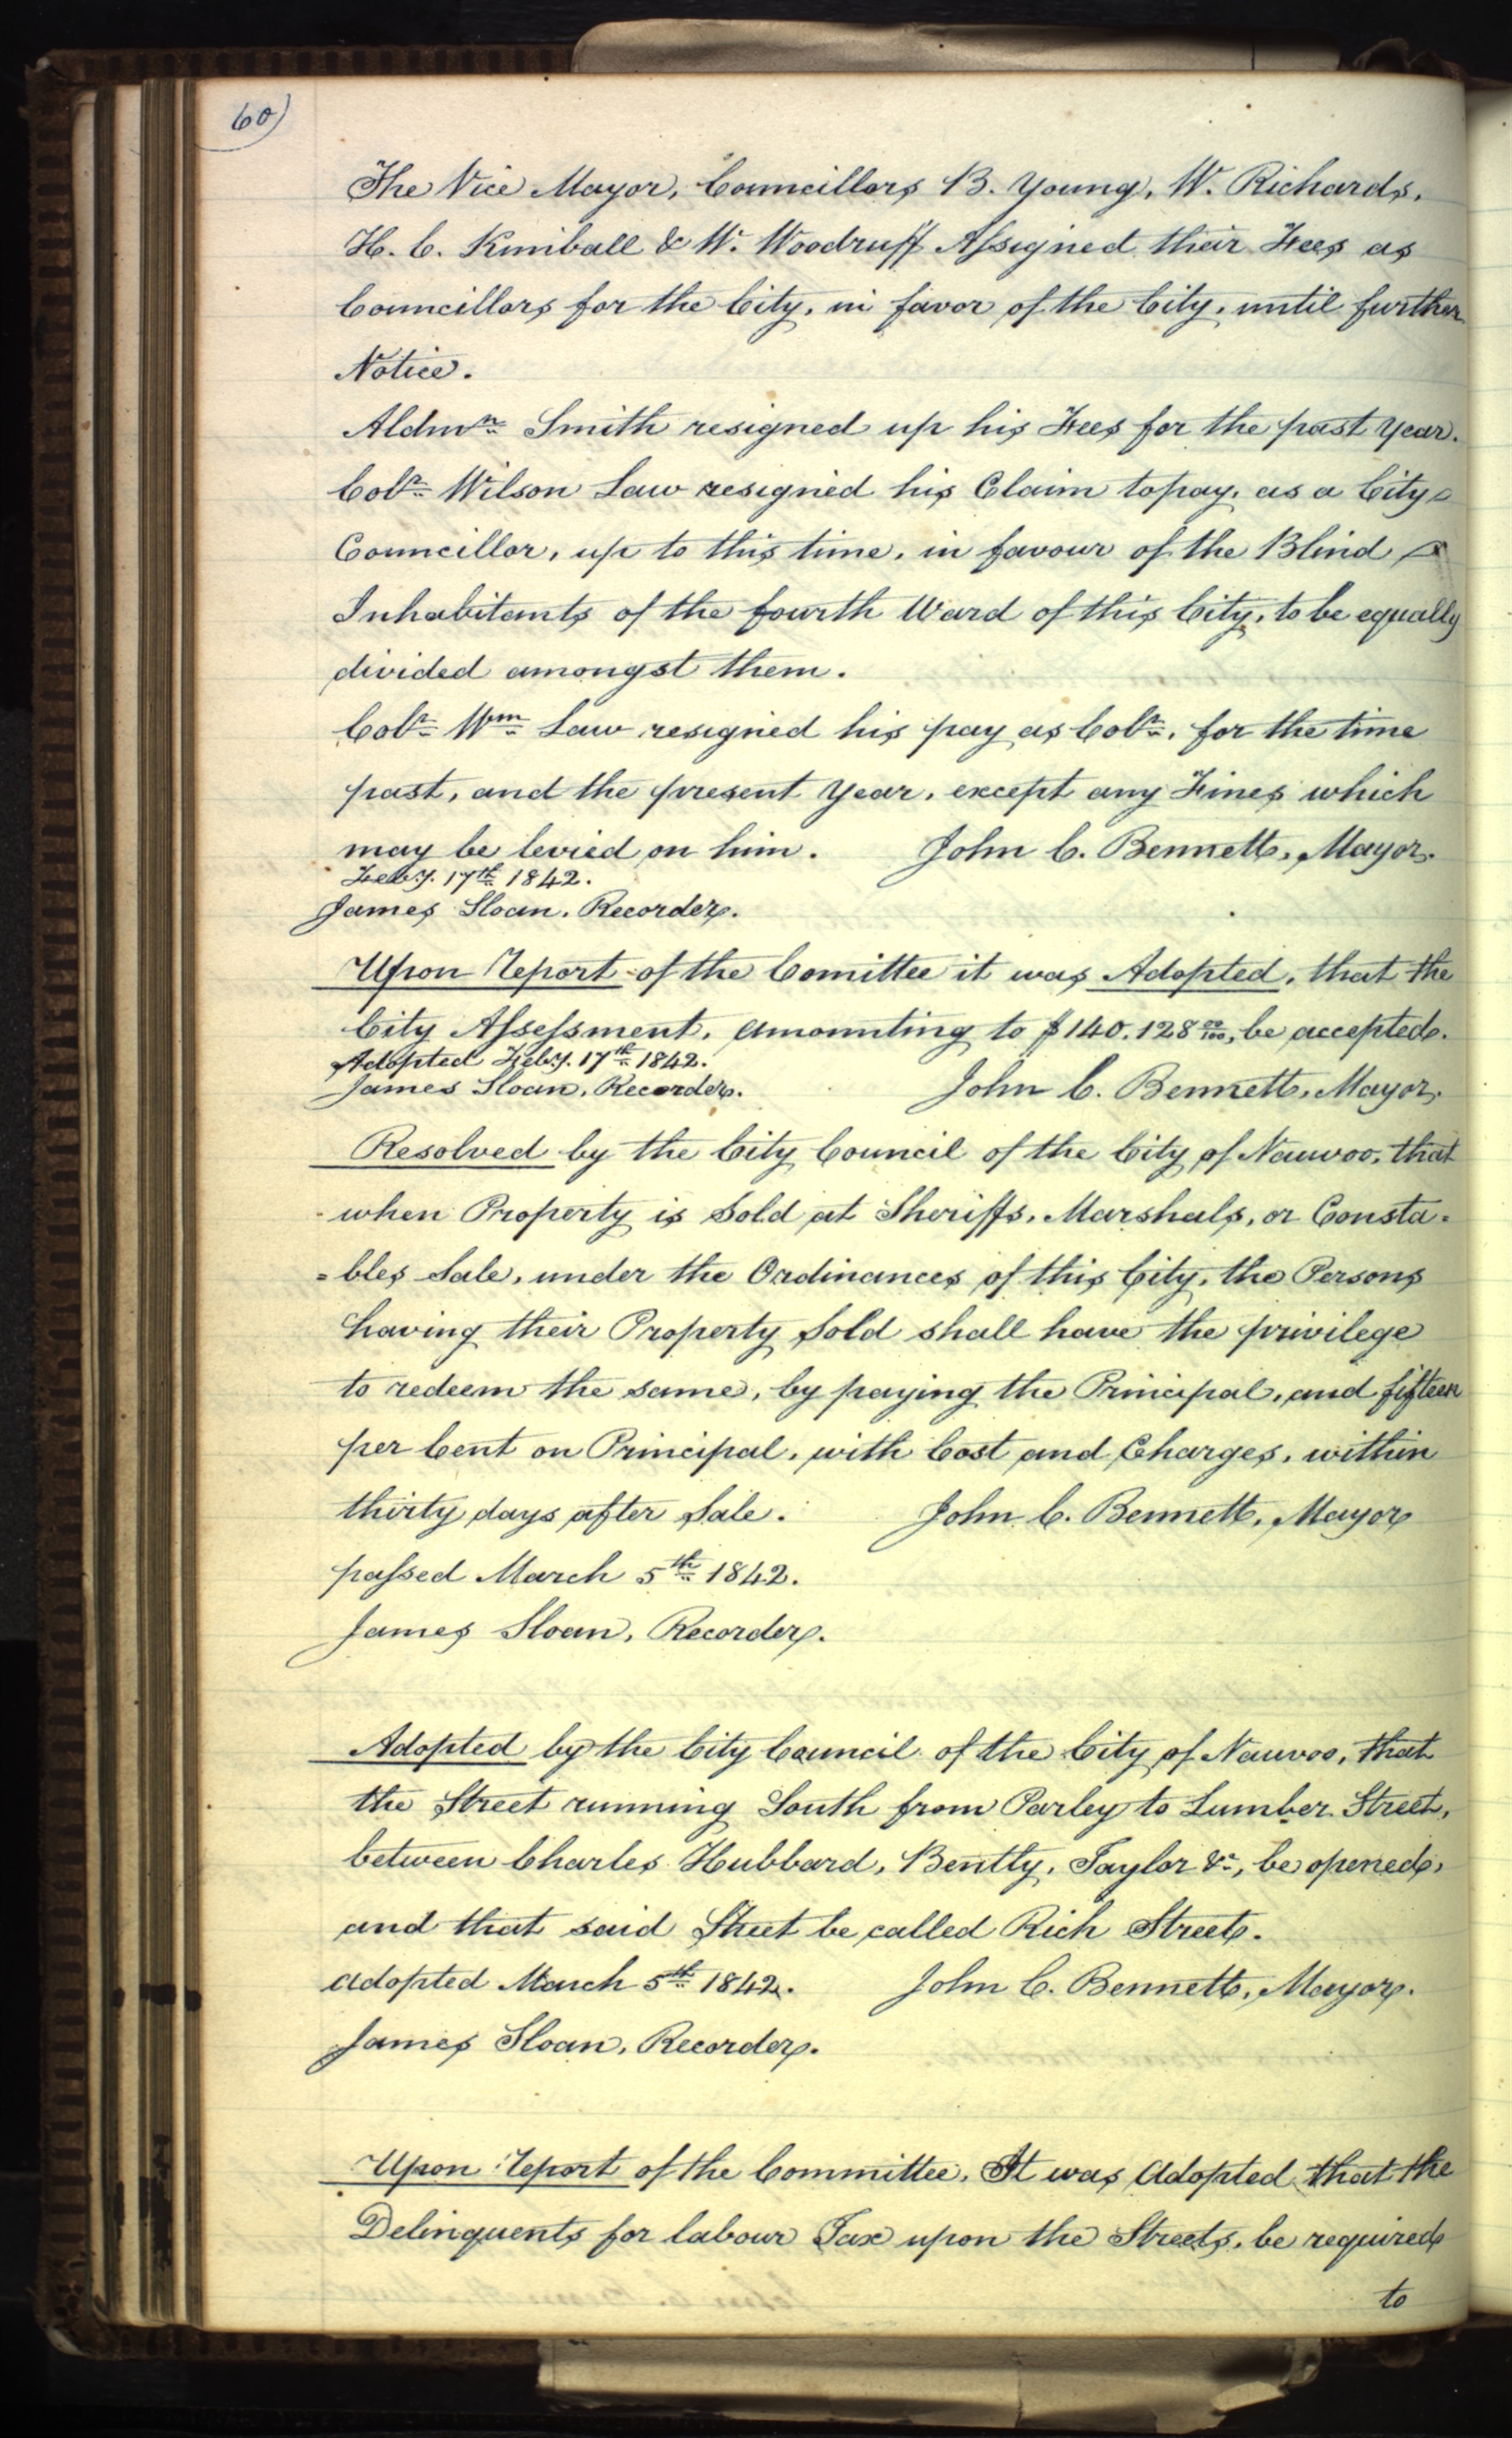 60)
The Vice Mayor, Councillors B. Young, W. Richards,
H. C. Kimball & W. Woodruff Assigned their Fees as
Councillors for the City, in favor of the City, until further
Notice.
Aldmn. Smith resigned up his Fees for the past Year.
Colr. Wilson Law resigned his Claim to pay, as a City
Councillor, up to this time, in favour of the Blind
Inhabitants of the fourth Ward of this City, to be equally
divided amongst them.
Colr. Wm. Law resigned his pay as Colr., for the time
past, and the present Year, except any Fines which
may be levied on him. John C. Bennett, Mayor.
Feby. 17th. 1842.
James Sloan, Recorder.
Upon Report of the Comittee it was Adopted, that the
City Assessment, amounting to $140.128 00/100, be accepted.
Adopted Feby. 17th. 1842.
James Sloan, Recorder. John C. Bennett, Mayor.
Resolved by the City Council of the City of Nauvoo, that
when Property is Sold at Sheriffs, Marshals, or Consta-
=bles Sale, under the Ordinances of this City, the Persons
having their Property Sold shall have the privilege
to redeem the same, by paying the Principal, and fifteen
per Cent on Principal, with Cost and Charges, within
thirty days after Sale. John C. Bennett, Mayor
passed March 5th. 1842.
James Sloan, Recorder.
Adopted by the City Council of the City of Nauvoo, that
the Street running South from Parley to Lumber Street,
between Charles Hubbard, Bently, Taylor &c, be opened,
and that said Street be called Rich Street.
adopted March 5th. 1842. John C. Bennett, Mayor.
James Sloan, Recorder.
Upon Report of the Committee, It was Adopted that the
Delinquents for labour Tax upon the Streets, be required
to